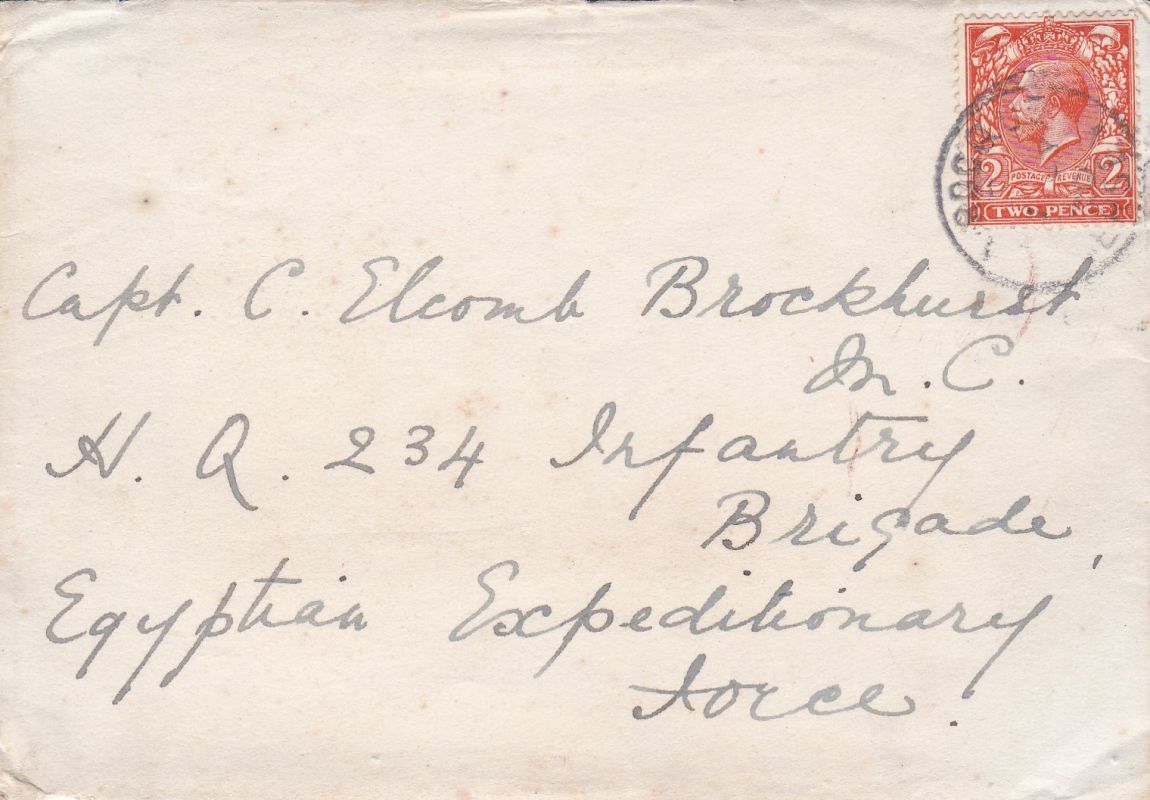 2 2
POSTAGE REVENUE
TWO PENCE
Capt. C. Elcomb Brockhurst
M.C.
H.Q. 234 Infantry
Brigade,
Egyptian Expeditionary
Force.